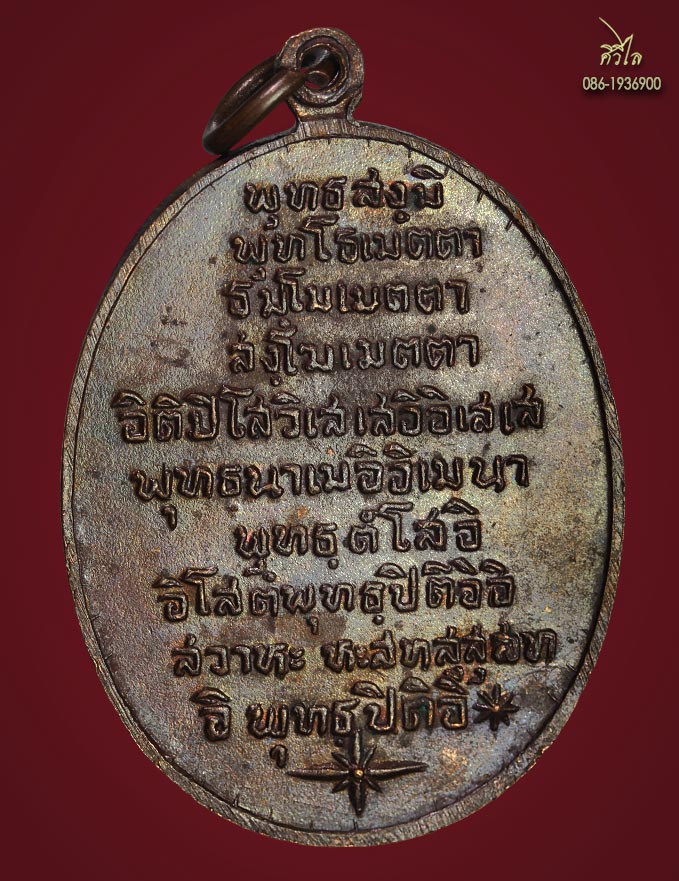 ศิวิไล
086-1936900
พุทธสงฺมิ
พุทโธเมตตา
ธมฺโมเมตตา
สงฺโฆเมตตา
อิติปิโสวิเสเสอิอิเสเส
พุทธนาเมอิอิเมนา
พุทธฺตํโสอิ
อิโสตํพุทธฺปิตีอิอิ
สวาหะ หะสหสฺสุ
อิ พุทธฺปิติอิ